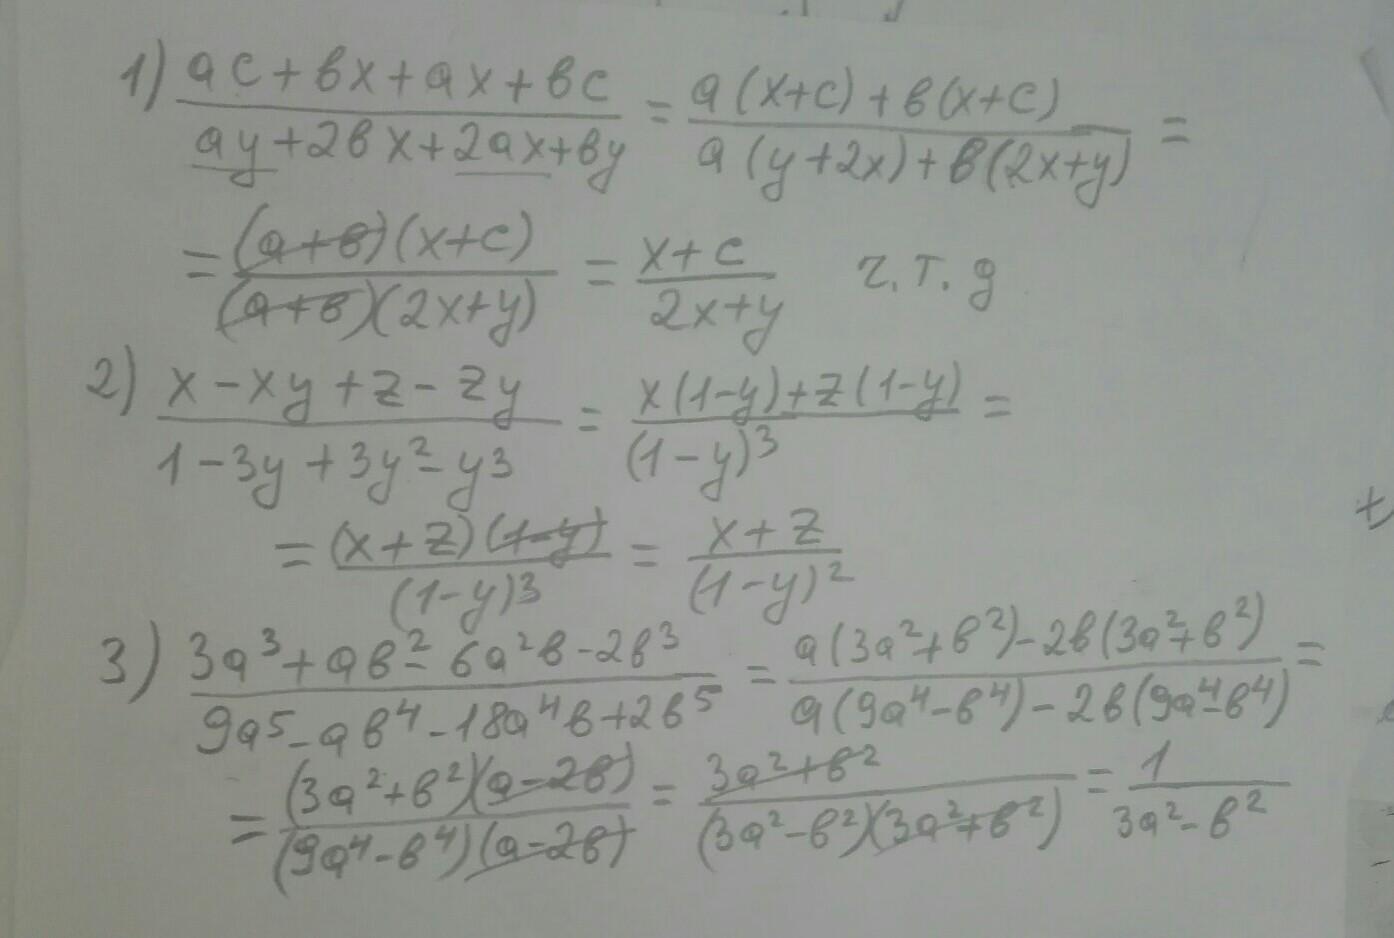 1) (ac+вx+ax+вc)/(ay+2вx+2ax+вy) = (a(x+c)+в(x+c))/(a(y+2x)+в(2x+y)) =
= ((a+в)(x+c))/((a+в)(2x+y)) = (x+c)/(2x+y) ч.т.д
2) (x-xy+z-zy)/(1-3y+3y²-y3) = (x(1-y)+z(1-y))/(1-y)³ =
= ((x+z)(1-y))/(1-y)3 = (x+z)/(1-y)²
3) (3a³+aв²-6a²в-2в³)/(9a⁵-aв⁴-18a⁴в+2в⁵) = (a(3a²+в²)-2в(3a²+в²))/(a(9a⁴-в⁴)-2в(9a⁴-в⁴)) =
= ((3a²+в²)(a-2в))/((9a⁴-в⁴)(a-2в)) = (3a²+в²)/((3a²-в²)(3a²+в²)) = 1/(3a²-в²)